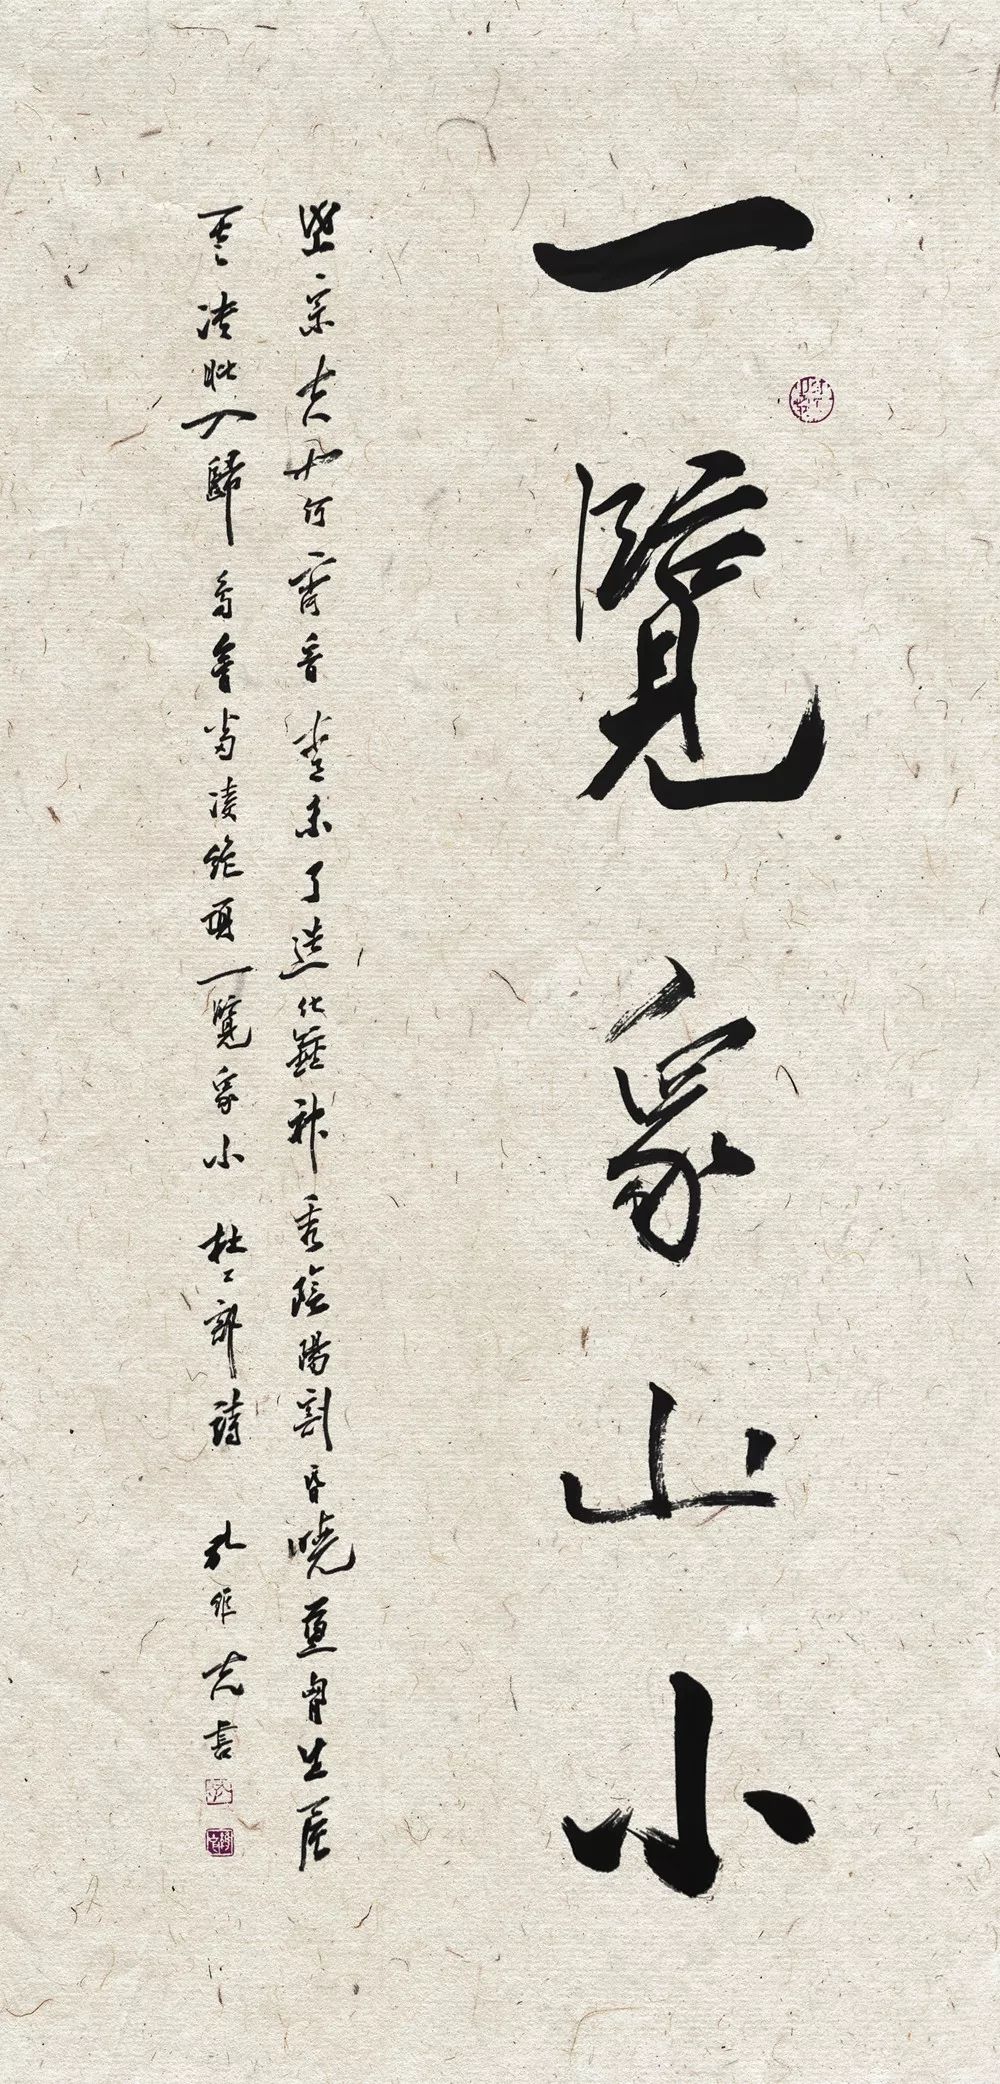 一覽眾山小
岱宗夫如何齊魯青未了造化鍾神秀陰陽割昏曉盪胸生層
雲決眥入歸鳥會當凌絕頂一覽眾小 杜工部詩 孔維克書